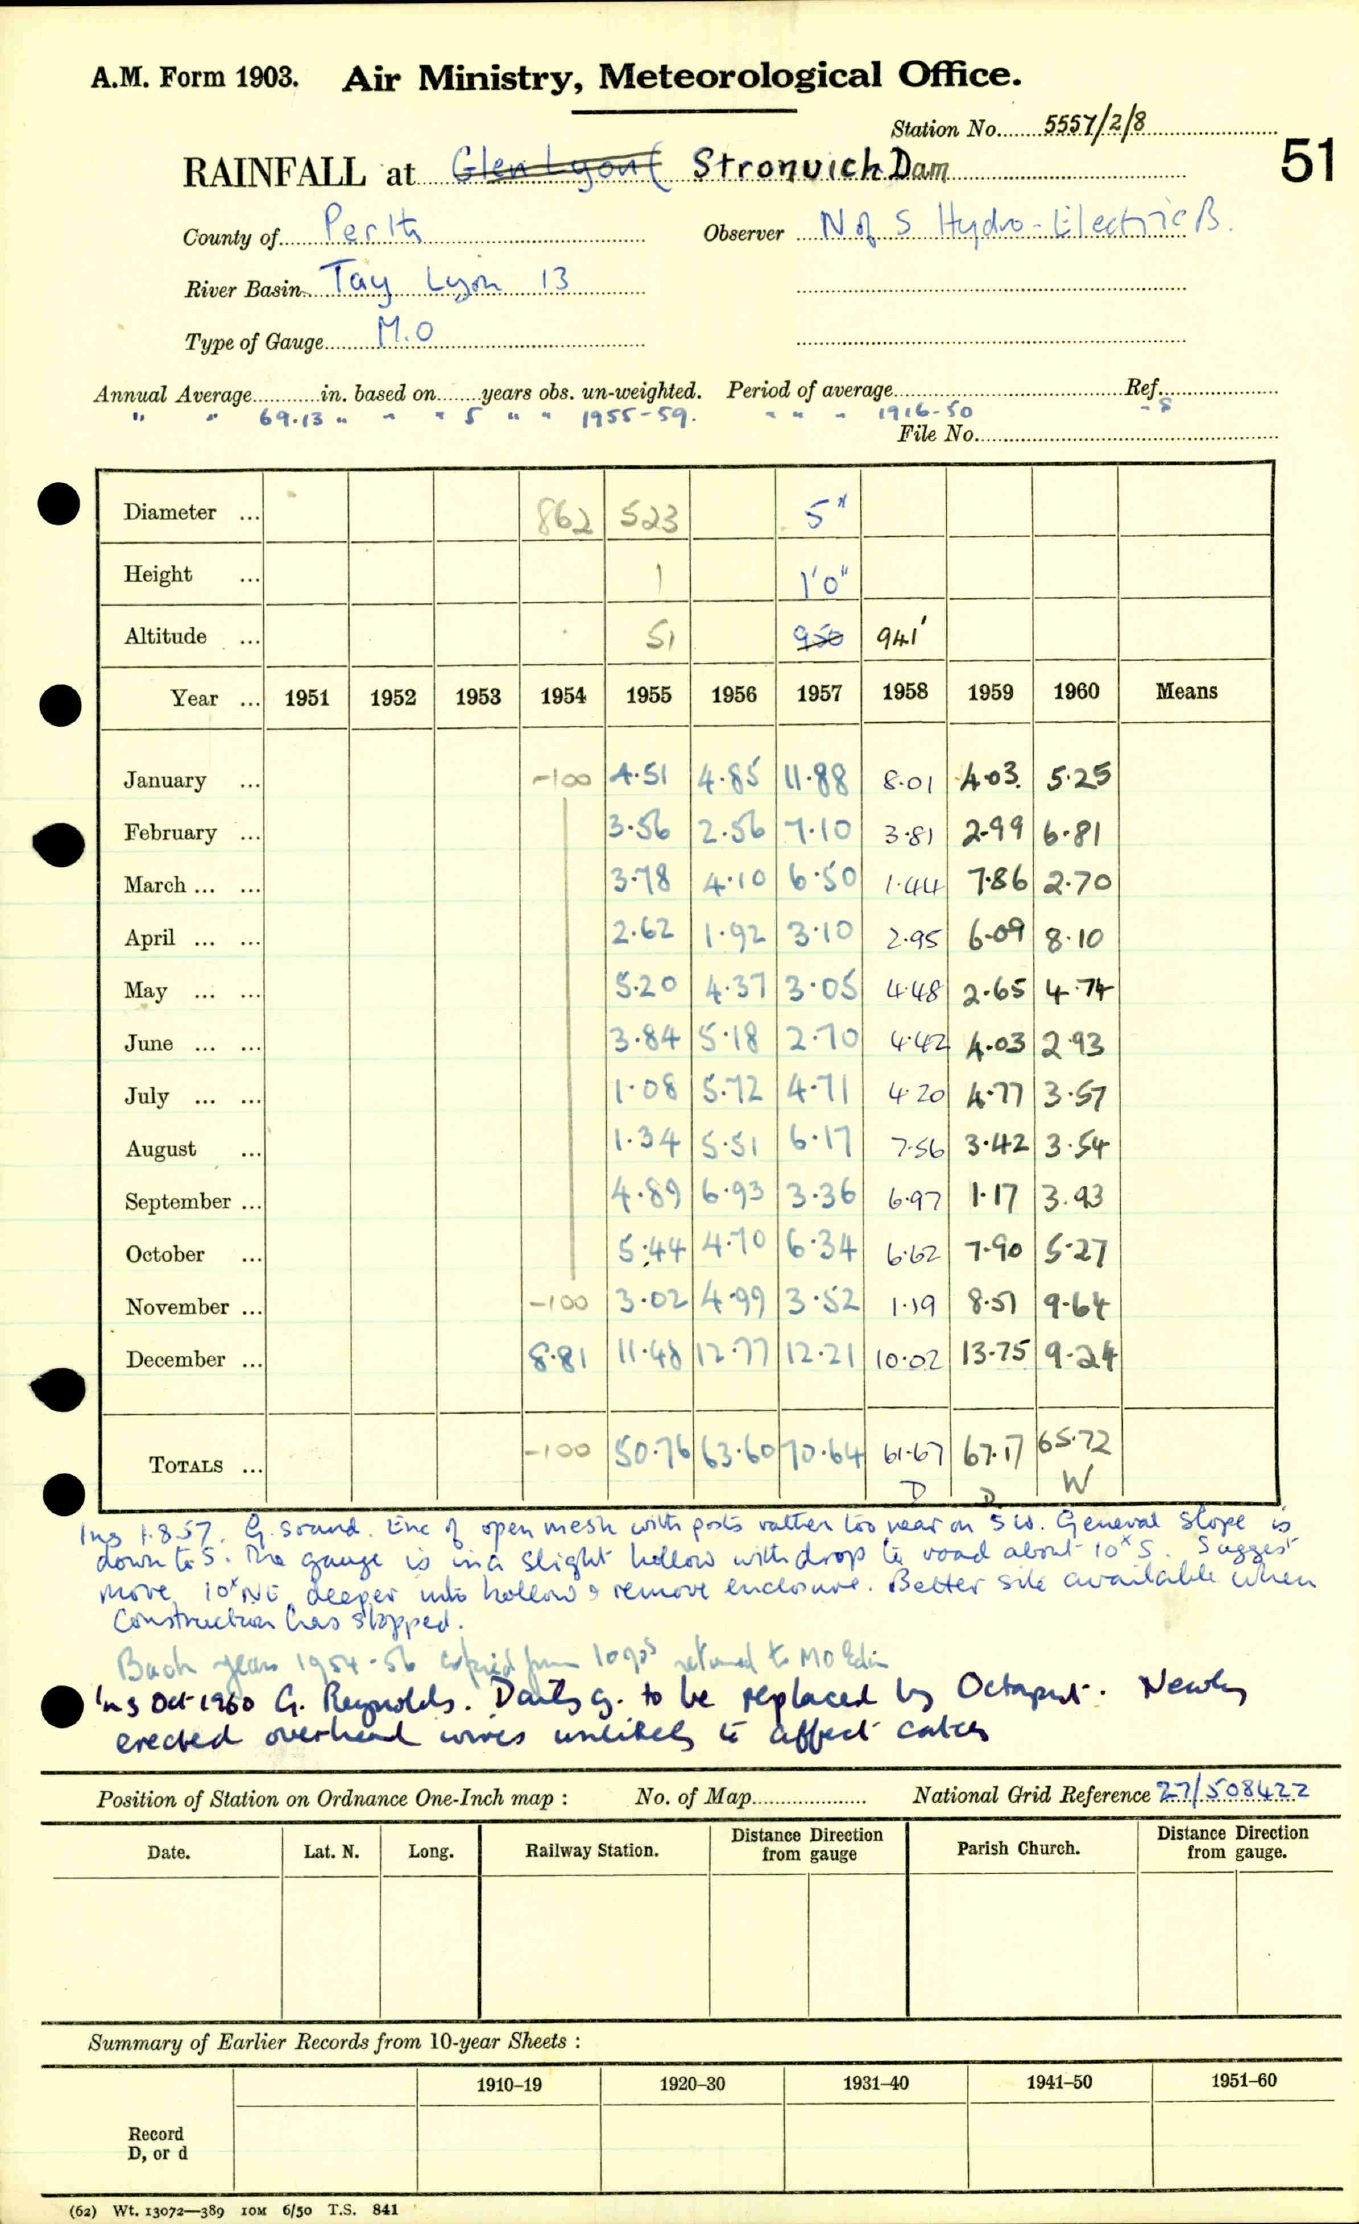 A.M. Form 1903. Air Ministry, Meteorological Office.
Station No. 5557/2/8
51
RAINFALL at Glen Lyon ( Stronuich Dam
County of Perth Observer N of S Hydro-Electric B.
River Basin Tay Lyon 13
Type of Gauge M.O
Annual Average in. based on years obs. un-weighted. Period of average Ref.
" " 69.13 " " " 5 " " 1955-59. " " " 1916-50 - S
File No.
Diameter ... 862 523 5"
Height ... 1 1'0"
Altitude ... 51 950 941'
Year ... 1951 1952 1953 1954 1955 1956 1957 1958 1959 1960 Means
January ... -100 4.51 4.85 11.88 8.01 4.03 5.25
February ... 3.56 2.56 7.10 3.81 2.99 6.81
March ... ... 3.78 4.10 6.50 1.44 7.86 2.70
April ... ... 2.62 1.92 3.10 2.95 6.09 8.10
May ... ... 5.20 4.37 3.05 4.48 2.65 4.74
June ... ... 3.84 5.18 2.70 4.42 4.03 2.93
July ... ... 1.08 5.72 4.71 4.20 4.77 3.57
August ... 1.34 5.51 6.17 7.56 3.42 3.54
September ... 4.89 6.93 3.36 6.97 1.17 3.93
October ... 5.44 4.70 6.34 6.62 7.90 5.27
November ... -100 3.02 4.99 3.52 1.19 8.51 9.64
December ... 8.81 11.48 12.77 12.21 10.02 13.75 9.24
TOTALS ... -100 50.76 63.60 70.64 61.67 67.17 65.72
D D W
Ins 1.8.57. G. sound. Enc of open mesh with posts rather too near on SW. General slope is
down to S. The gauge is in a slight hollow with drop to road about 10x S. Suggest
move 10x NE deeper into hollow & remove enclosure. Better site available when
Construction has stopped.
Back years 1954-56 copied from returned to MO Edin
Ins Oct 1960 G. Reynolds. Daily g. to be replaced by Octapent. Newly
erected overhead wires unlikely to affect catch
Position of Station on Ordnance One-Inch map : No. of Map National Grid Reference 27/508422
Date. Lat. N. Long. Railway Station. Distance Direction from gauge Parish Church. Distance Direction from gauge.
Summary of Earlier Records from 10-year Sheets :
1910–19 1920–30 1931–40 1941–50 1951–60
Record
D, or d
(62) Wt. 13072—389 10M 6/50 T.S. 841